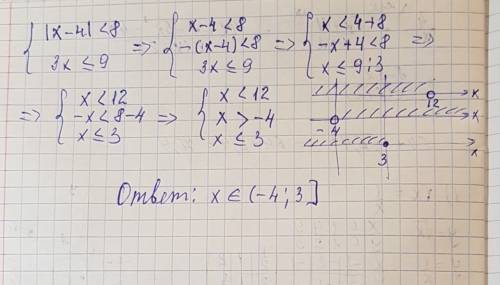 { |x-4| < 8 ; 3x ≤ 9 => { x-4 < 8 ; -(x-4) < 8 ; 3x ≤ 9 => { x < 4+8 ; -x+4 < 8 ; x ≤ 9:3 =>
=> { x < 12 ; -x < 8-4 ; x ≤ 3 => { x < 12 ; x > -4 ; x ≤ 3
12 x
-4 x
3 x
Ответ: x ∈ (-4; 3]